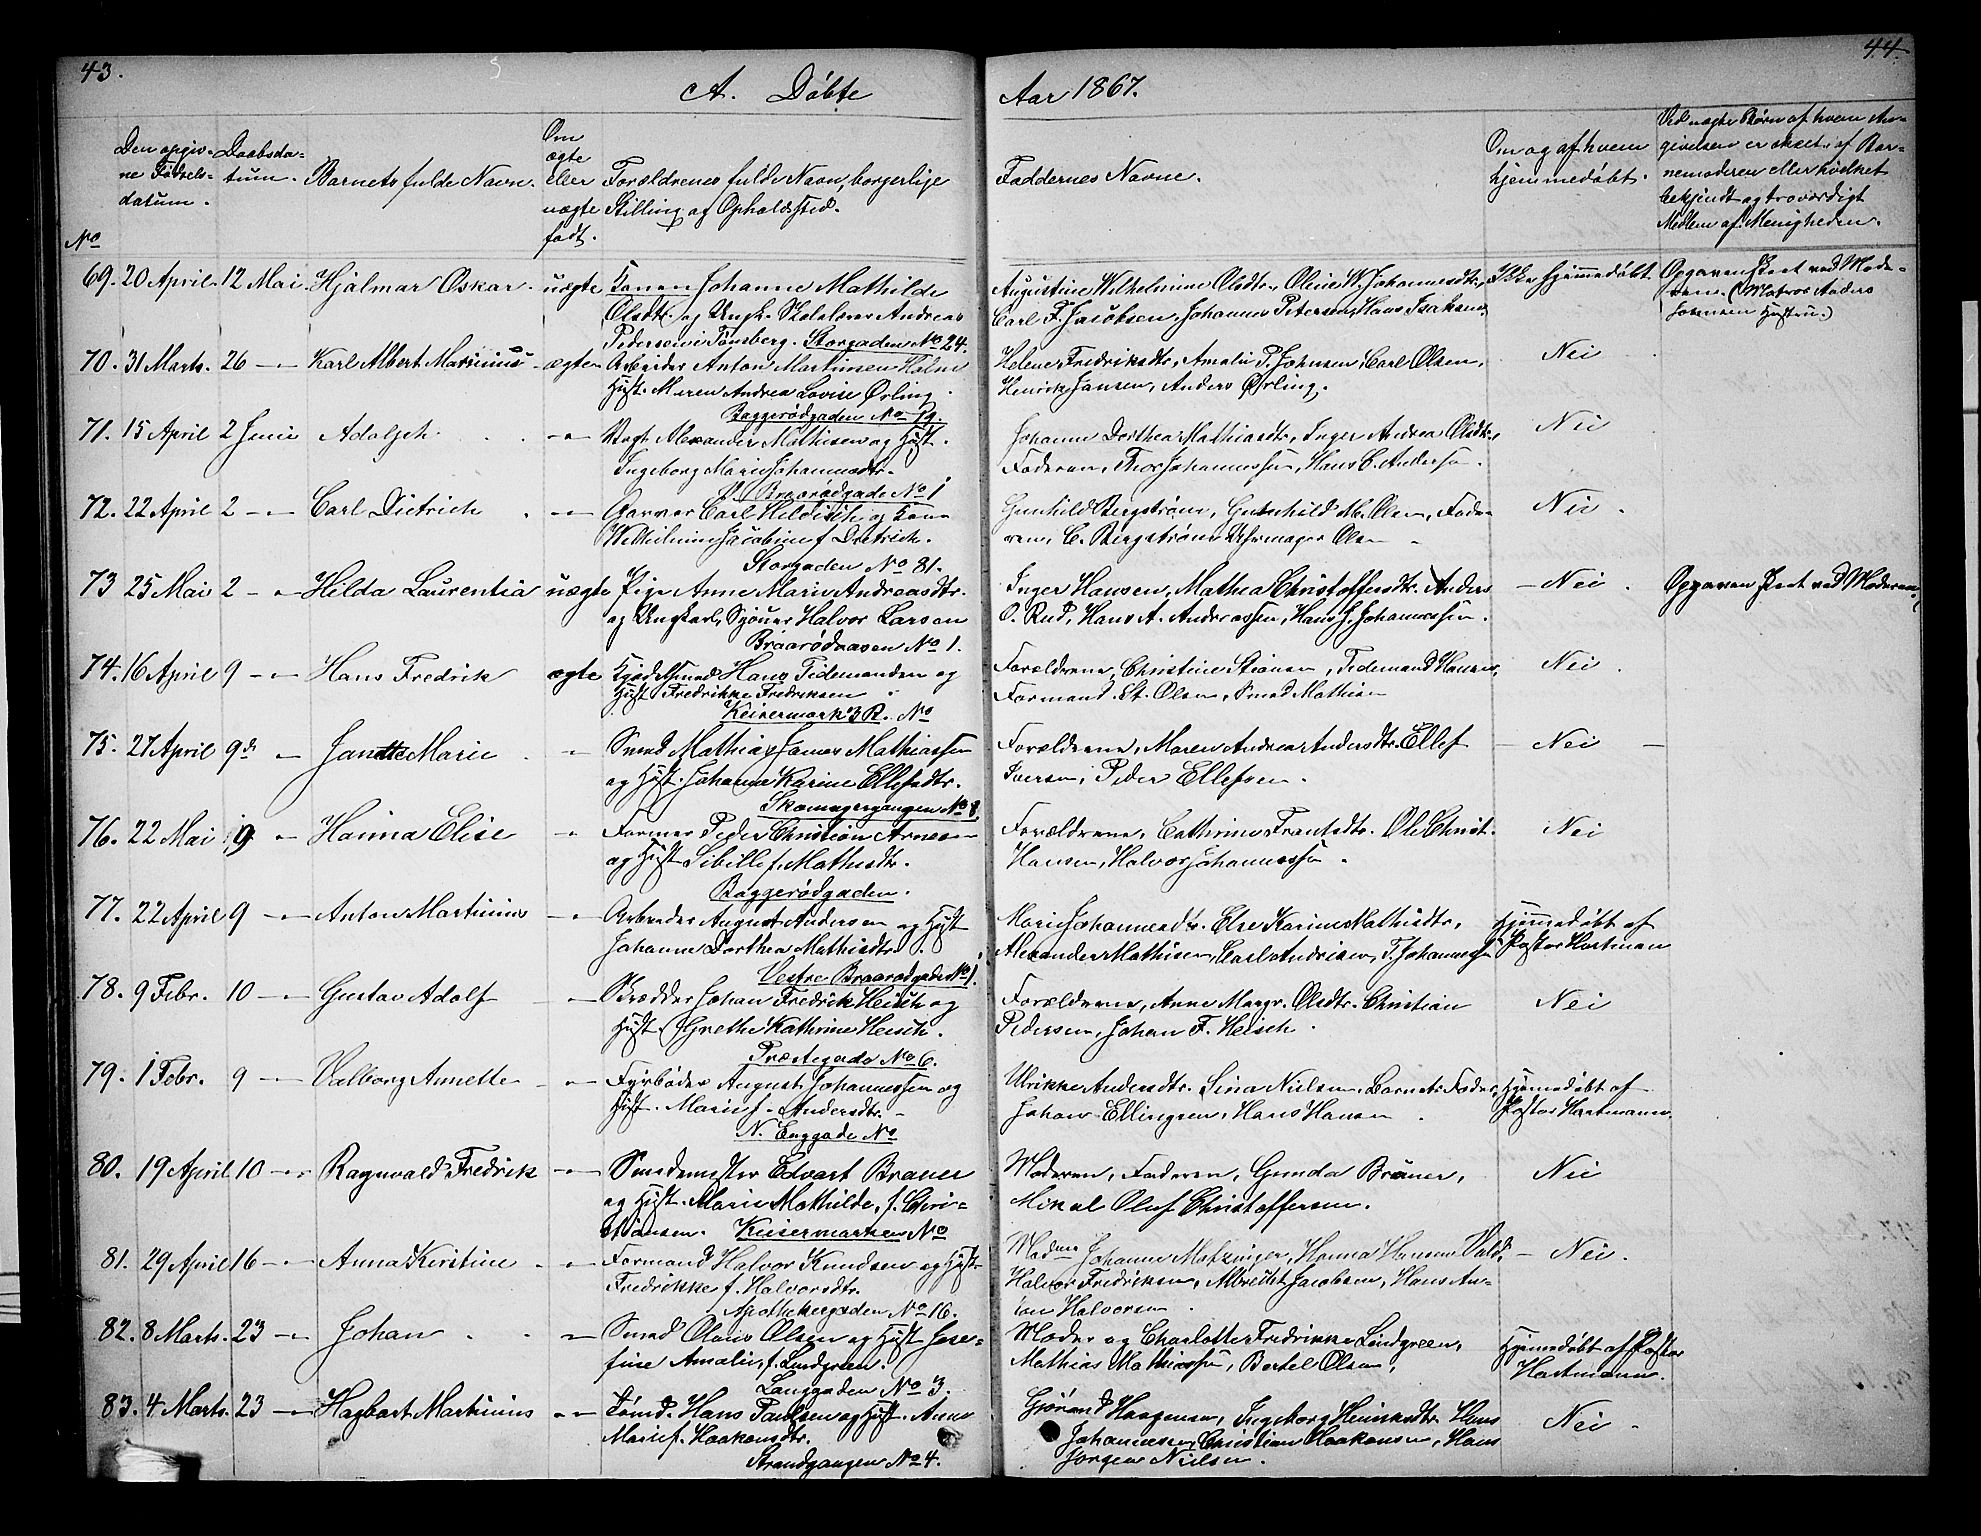 43.
A. Døbte
Den opgiv-
ne Fødsels-
datum.
Daabsda-
tum.
Barnets fulde Navn.
Om
ægte
eller
uægte
født.
Forældrenes fulde Navn, borgerlige
Stilling og Opholdsted.
No
69. 20 April. 12 Mai Hjalmar Oskar uægte Konen Johanne Mathilde
Olsdtr. og Ungk. Skolelærer Andreas
Pedersen i Tønsberg. Storgaden No 24.
70. 31 Marts. 26 —"— Karl Albert Martinius ægte Arbeider Anton Martinsen Holm
Hust. Maren Andrea Lovise Ørling.
Baggerødgaden No 19.
71. 15 April 2 Junie Adolph —"— Vogt Alexander Mathisen og Hust.
Ingeborg Marie Johannesdtr.
V. Braarødgade No 1
72. 22 April 2 —"— Carl Dietrich —"— Garver Carl Hilditsch og Kone
Wilhelmine Jacobine f. Dietrich.
Storgaden No 81.
73 25 Mai 2 —"— Hilda Laurentia uægte Pige Anne Marie Andreasdtr.
og Ungkarl, Sjømd Halvor Larsen
Braarødgaden No 1.
74. 16 April 9 —"— Hans Fredrik ægte Hans Tidemandsen og
Hust Fredrikke Fredriksen
Keisermark 3 R. No
75. 27 April 9d —"— Janette Marie —"— Smed Mathias James Mathiassen
og Hust. Johanne Karine Ellefsdtr.
Skomagergangen No 8.
76. 22 Mai 9 —"— Hanna Elise —"— Former Peder Christian Arnesen
og Hust Sibille f. Mathisdtr.
Baggerødgaden.
77. 22 April 9 —"— Anton Martinius —"— Arbeider August Andersen og Hust
Johanne Dorthea Mathisdtr.
Vestre Braarødgade No 1.
78. 9 Febr. 10 —"— Gustav Adolf —"— Johan Fredrik Heisch og
Hust. Grethe Kathrine Heisch.
Præstegade No 6.
79. 1 Febr. 9 —"— Valborg Annette —"— Fyrbøder August Johannessen og
Hust. Marie f. Andersdtr. —
N. Enggade No
80. 19 April 10 —"— Ragnvald Fredrik —"— Smedemester Edvart Brauer
og Hust. Marie Mathilde, f. Chri-
stiansen. Keisermarken No
81. 29 April 16 —"— Anna Kirstine —"— Formand Halvor Knudsen og Hust
Fredrikke f. Halvorsdtr.
Apothekergaden No 16.
82. 8 Marts. 23 —"— Johan —"— Smed Olaus Olsen og Hust Jose-
fine Amalie, f. Lindgreen.
Langgaden No 3.
83. 4 Marts. 23 —"— Hagbart Martinius —"— Tømd. Hans Paulsen og Hust. Anne
Marie f. Haakensdtr.
Strandgangen No 4.
44.
Aar 1867.
Faddernes Navne.
Om og af hvem
hjemmedøbt.
Ved uægte Børn af hvem An-
givelsen er skeet, af Bar-
nemoderen eller hvilket
bekjendt og troværdigt
Medlem af Menigheden.
Augustine Wilhelmine Olsdtr., Oline W. Johannesdtr., Ikke hjemmedøbt Opgaven skeet ved Mode-
Carl F. Jacobsen, Johannes Petersen, Hans Isaksen ren. (Matros Anders
Johnsen Hustru.)
Helene Fredriksdtr., Amalie P. Johnsen, Carl Olsen, Nei
Henrik Jansen, Anders Ørling.
Johanne Dorthea Mathiasdtr., Inger Andrea Olsdtr., Nei
Faderen, Thor Johannessen, Hans C. Andersen.
Gunhild Bergstrøm, Gunhild M. Olsen, Fade- Nei
ren, C. Bergstrøm, Olsen
Inger Hansen, Mathea Christoffersdtr. Anders — Nei Opgaven skeet ved Moderen.
O. Rud, Hans A. Andreassen, Hans J. Johannessen.
Forældrene, Christine Steensen, Tidemand Hansen, Nei
Formand St. Olsen, Smed Mathisen
Forældrene, Maren Andrea Andersdtr. Ellef — Nei —
Iversen, Peder Ellefsen.
Forældrene, Cathrine Frantsdtr. Ole Christ. Nei
Hansen, Halvor Johannessen.
Marie Johannesdtr. Else Karine Mathisdtr., Hjemmedøbt af
Alexander Mathisen, Carl Andrisen, T. Johannessen Pastor Hartman
Forældrene, Anne Margr. Olsdtr. Christian Nei
Pedersen, Johan F. Heisch.
Ulrikke Andersdtr. Lina Nielsen, Barnets Fader, Hjemmedøbt af
Johan Ellingsen, Hans Hansen. Pastor Hartmann.
Moderen, Faderen, Gunda Brauer, Nei
Mikal Oluf Christoffersen.
Madme Johanne Metzinger, Hanna Hansen Vold, — Nei.
Halvor Fredriksen, Albrecht Jacobsen, Hans An-
ton Halvorsen.
Moder og Charlotte Fredrikke Lindgreen, Hjemmedøbt af Pastor
Mathias Mathiassen, Bertel Olsen, Hartmann.
Gjørand Haagensen, Ingeborg Henriksdtr. Hans Nei
Johannesen, Christian Haakonsen, Hans
Jørgen Nielsen.